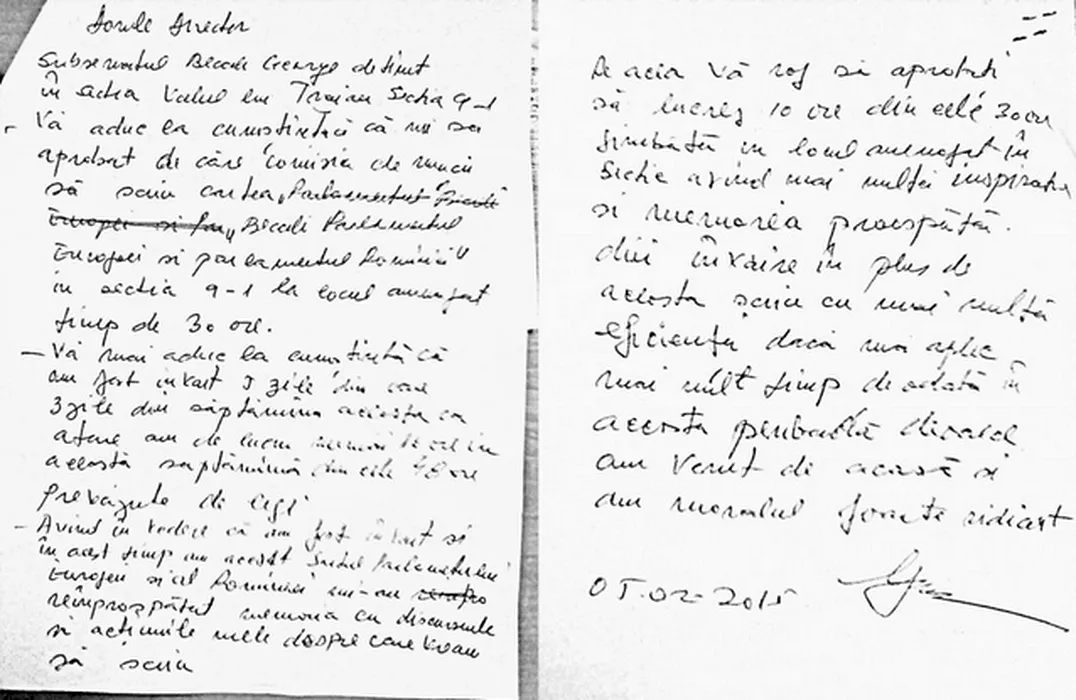 Domle Director
Subsemnatul Becali George detinut
în sectia Valul lui Traian Sectia 9-1
- Vă aduc la cunostintă că mi sa
aprobat de către comisia de muncă
să scriu cartea „Parlamentul
„Becali Parlamentul
Europei si parlamentul României"
în sectia 9-1 la locul amenajat
timp de 30 ore.
- Vă mai aduc la cunostintă că
am fost învoit 5 zile din care
3 zile din săptămîna aceasta ca
atare am de lucru numai ore în
această saptămînă din cele 40 ore
prevăzute de legi
- Avînd în vedere că am fost învoit si
în acest timp am accesat Saitul Parlamentului
Europei si al României mi-au
reînprospătat memoria cu discursurile
si actiunile mele despre care vreau
să scriu
De aceia Vă rog să aprobati
să lucrez 10 ore din cele 30 ore
sîmbătă in locul amenajat în
Sectie avînd mai multă inspiratie
si memoria proaspătă.
din învoire în plus de
aceasta scriu cu mai multă
eficientă dacă mai aplec
mai mult timp deodată în
aceasta perioadă deoarece
am venit de acasă si
am moralul foarte ridicat
05.02-2015